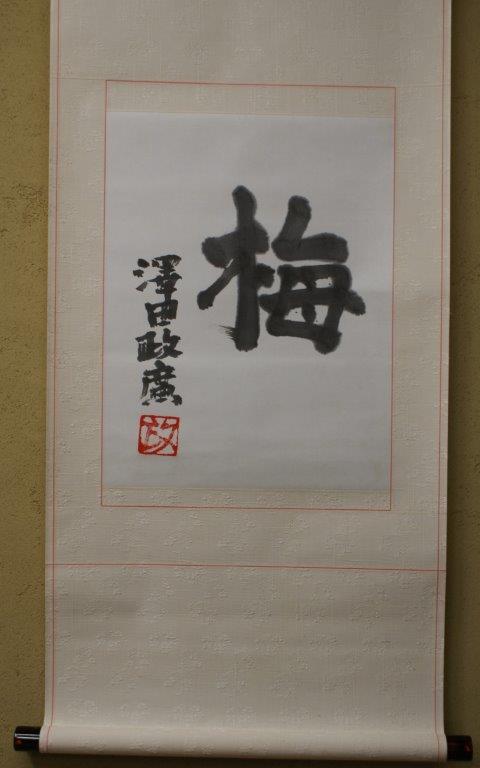 梅
澤田政廣
政